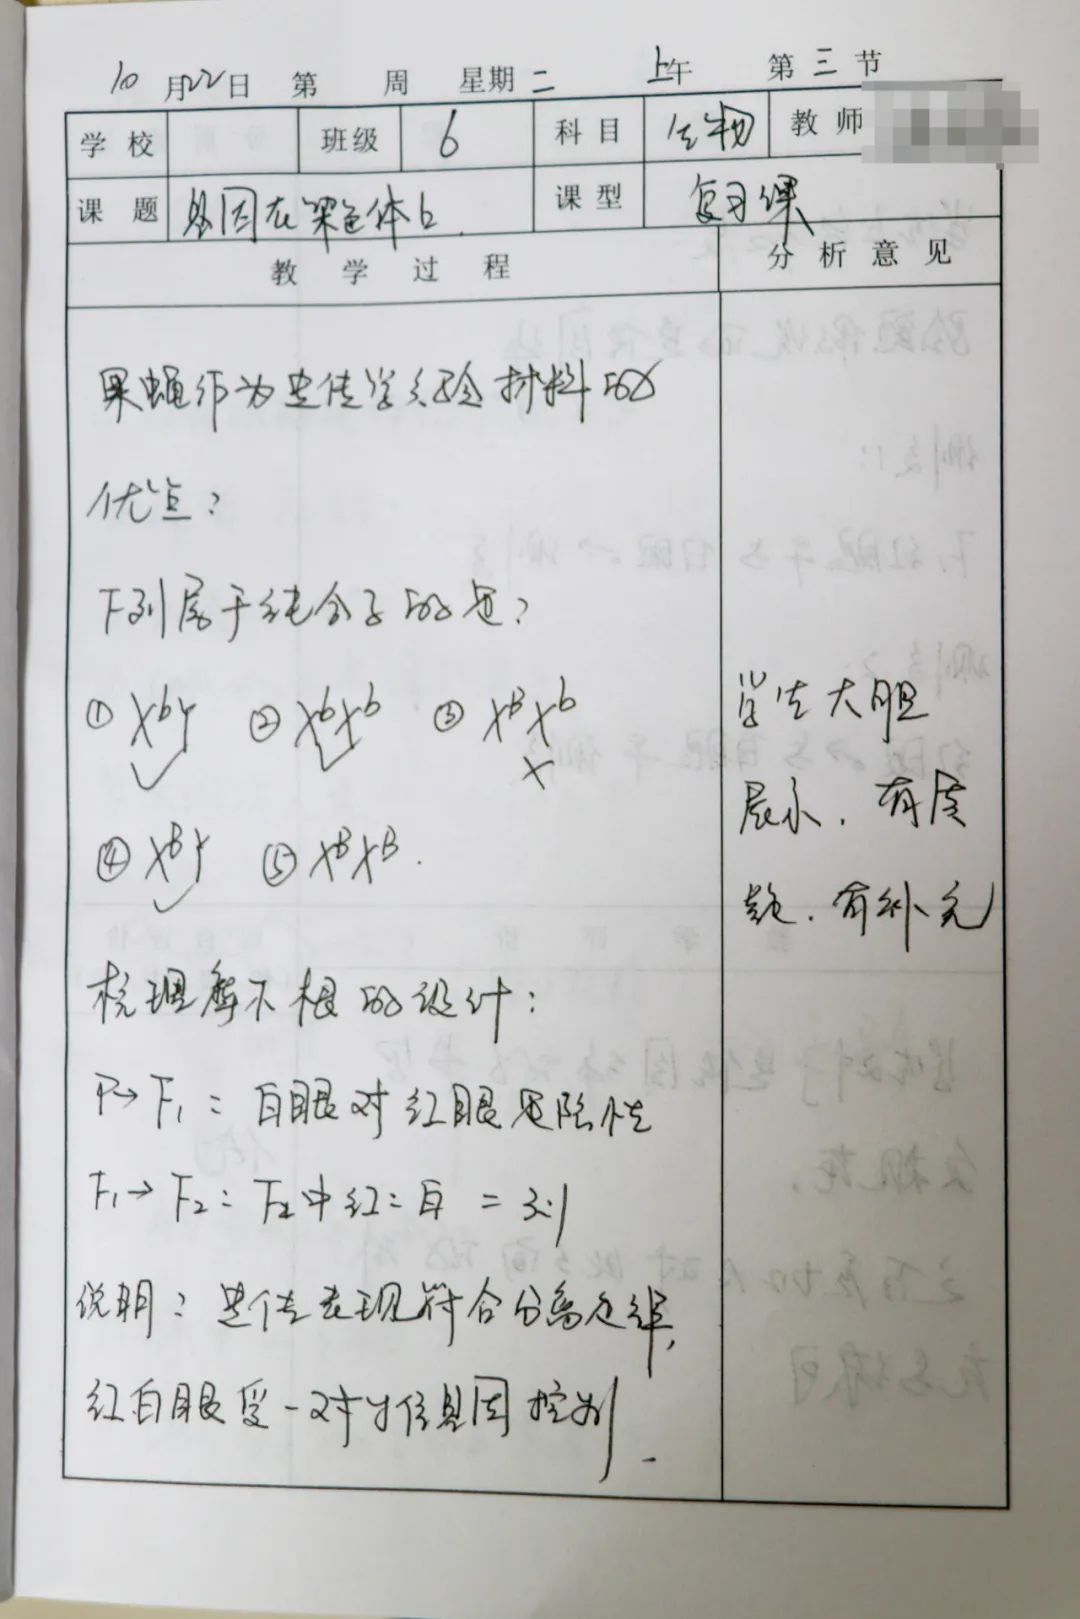 10月22日 第 周 星期二 上午 第三节
学校 班级 6 科目 生物 教师
课题 基因在染色体上. 课型 复习课
教学过程 分析意见
果蝇作为遗传学实验材料的
优点?
下列属于纯合子的是?
① XᵇY ② XᵇXᵇ ③ XᴮXᵇ
④ XᴮY ⑤ XᴮXᴮ.
学生大胆
展示.有质
疑.有补充
梳理摩尔根的设计:
P→F₁:白眼对红眼是隐性
F₁→F₂:F₂中红:白=3:1
说明:遗传表现符合分离定律,
红白眼受一对等位基因控制.